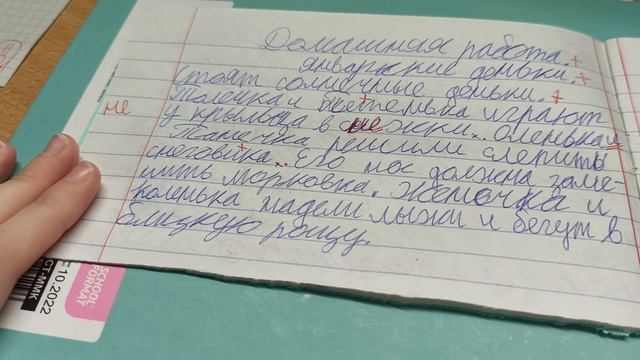 Домашная работа.
январские деньки.
Стоят солнечные деньки.
Толечка и Светелька играют
не
у крыльца в снежки. Оленька и
Танечка решили слепить
снеговика. Его нос должна заме-
нить морковка. Жемочка и
Коленька надели лыжи и бегут в
блицкую рощу.
SCHOOL
FORMAT
СТ-ММК
E 10.2022